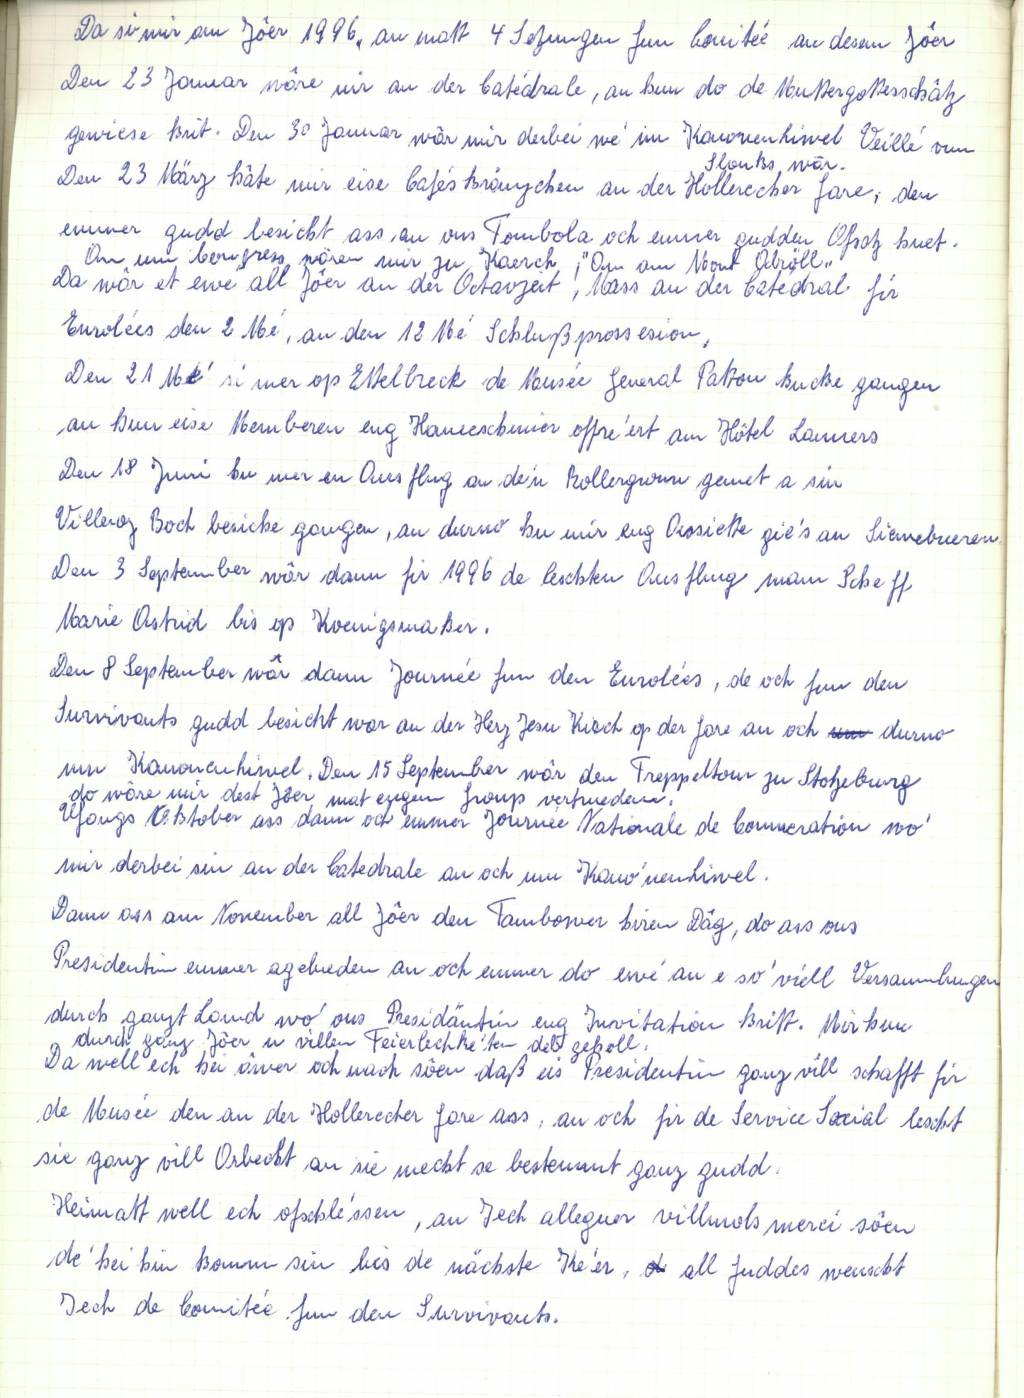 Da si mir am Jôer 1996, an matt 4 Setzungen fun Comitée an desem Jôer
Den 23 Januar wôre mir an der Catédrale, an hun do de Muttergottesschâtz
gewiese krit. Den 30 Januar wôr mir derbei wé im Kanounenhiwel Veillé vun
Slonks wôr.
Den 23 März hâte mir eise Cafés Kränzchen an der Hollerecher Gare, den
emmer gudd besicht ass, an ons Tombola och emmer gudden Ofsatz huet.
Om um Congress wôren mir zu Kaerch, "Om am Noort Gbrôll"
Da wôr et ewé all Jôer an der Octavzeit, Mass an der Catédral fir
Enrolées den 2 Mé, an den 12 Mé Schlußprossesion,
Den 21 Mé si mer op Ettelbreck de Musée General Patton kucke gangen
an hun eise Memberen eng Hameschmier offréert am Hôtel Lanners
Den 18 Juni hu mer en Ausflug an déi Rollergronn gemet a sin
Villeroy Boch besicke gangen, an durno hu mir eng Owsiette giés an Siewebueren.
Den 3 September wôr dann fir 1996 de leschten Ausflug mam Scheff
Marie Astrid bis op Koenigsmaker.
Den 8 September wôr dann Journée fun den Enrolées, de och fun den
Survivants gudd besicht war an der Herz Jesu Kirch op der Gare an och durno
um Kanounenhiwel. Den 15 September wôr den Treppeltour zu Stolzeburg
do wôre mir dest Jôer mat engem Group vertrueden.
Ufangs Oktober ass dann och emmer Journée Nationale de Commération wo'
mir derbei sin an der Catedrale an och um Kano'nenhiwel.
Dann ass am November all Jôer den Tambower hiren Dâg, do ass ons
Presidentin emmer agelueden an och emmer do ewé an e so' viell Versammlungen
durch ganzt Land wo' ons Presidäntin eng Invitation kritt. Mir hun
durch ganz Jôer u villen Feierlechkéten deelgeholl.
Da well ech hei âwer och nach sôen daß eis Presidentin ganz vill schafft fir
de Musée den an der Hollerecher Gare ass, an och fir de Service Social lescht
sie ganz vill Orbecht an sie mecht se bestemmt ganz gudd.
Heimatt well ech ofschléssen, an Iech alleguer villmols merci sôen
dé hei hin komm sin bis de nächste Kéer, all Guddes wenscht
Iech de Comitée fun den Survivants.